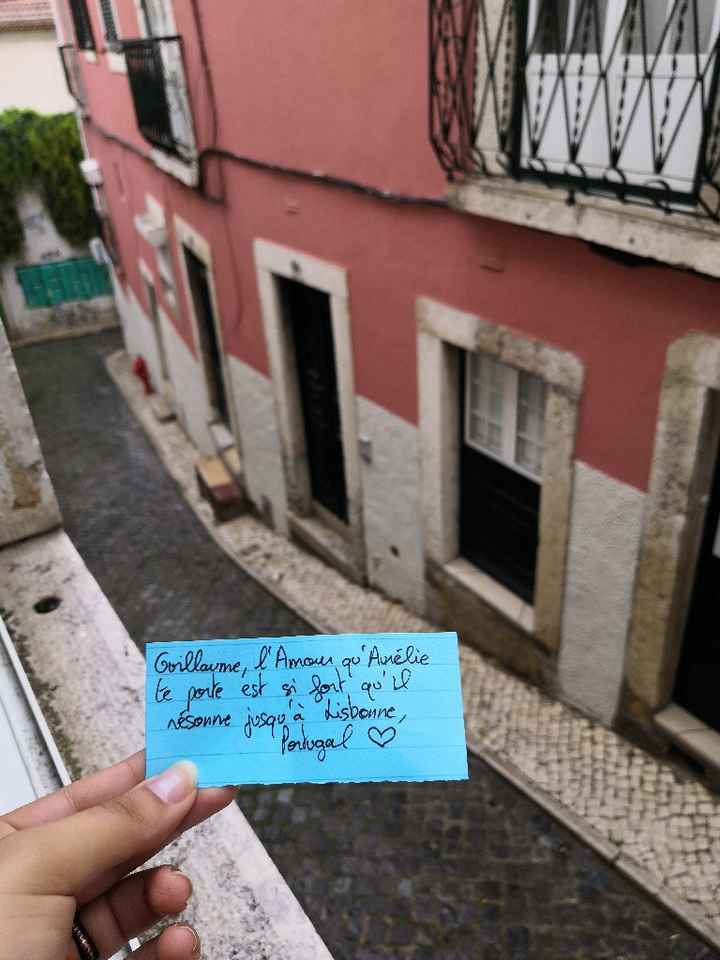 Guillaume, l'Amour qu'Aurélie
te porte est si fort qu'il
résonne jusqu'à Lisbonne,
Portugal ♡